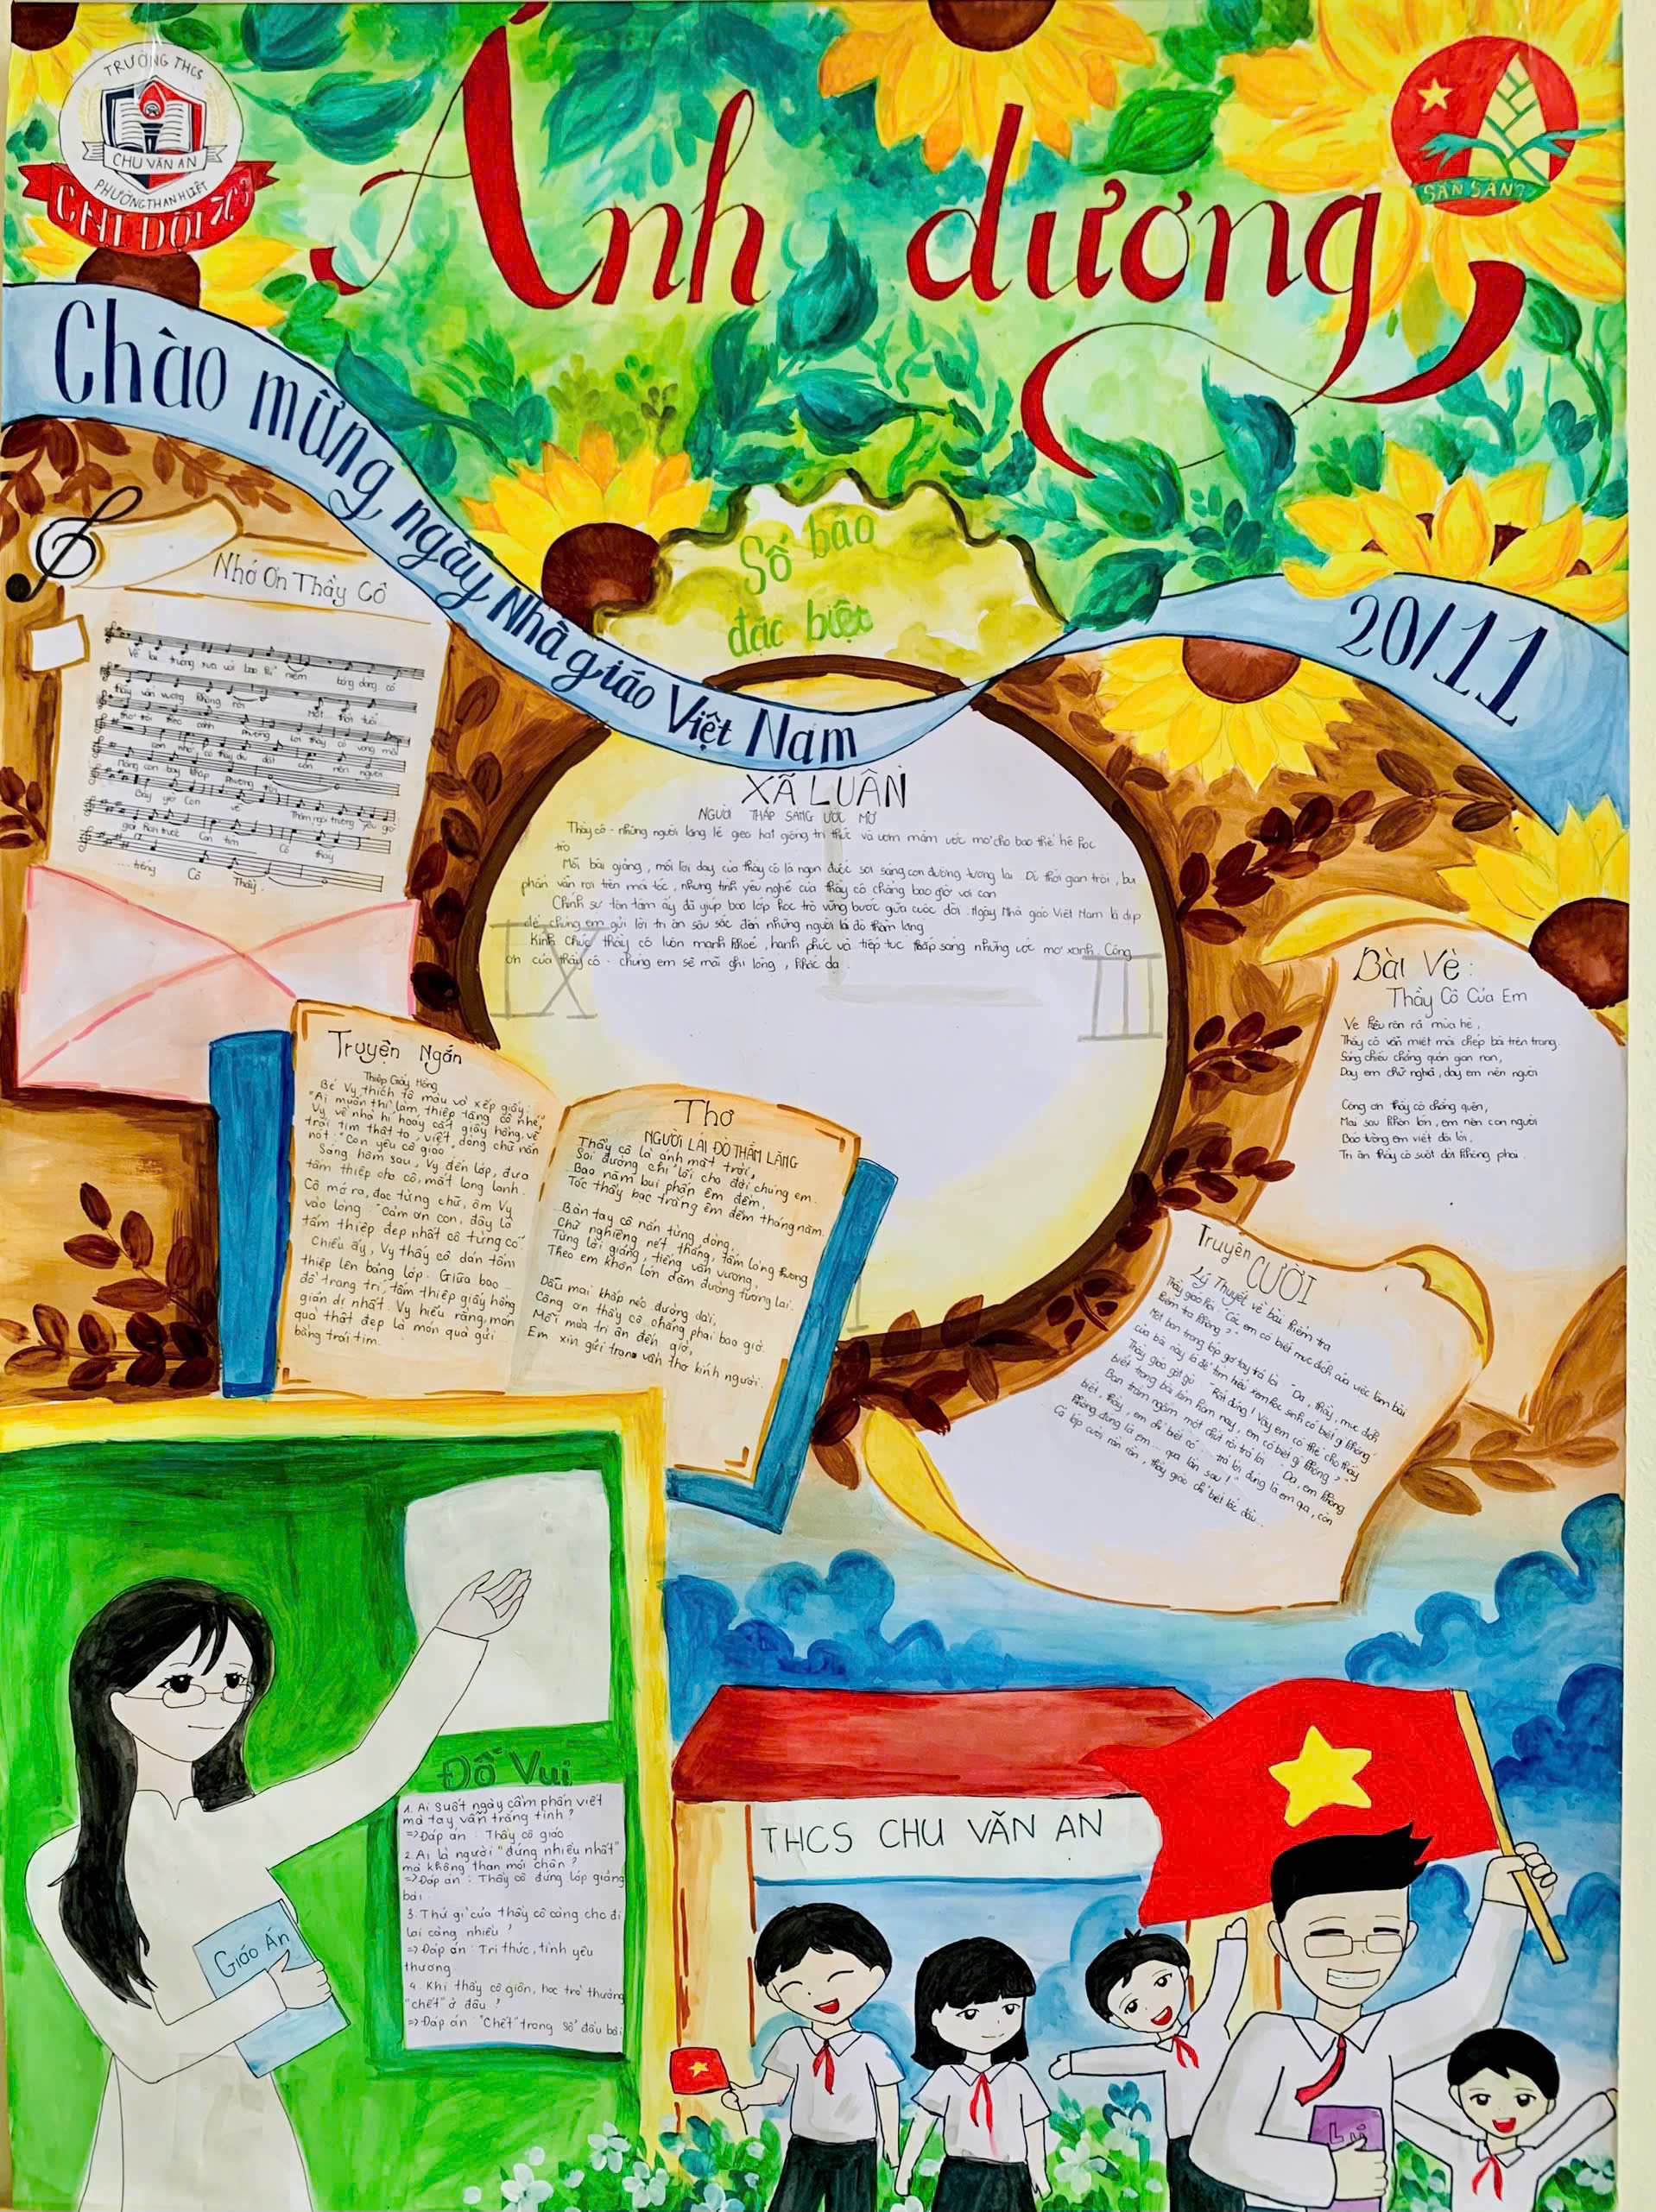 TRƯỜNG THCS
CHU VĂN AN
PHƯỜNG THANH LIỆT
CHI ĐỘI 7C3
Ánh dương
SẴN SÀNG
Chào mừng ngày Nhà giáo Việt Nam
20/11
Số báo
đặc biệt
Nhớ Ơn Thầy Cô
Về lại trường xưa với bao kỉ niệm bóng dáng cô
thầy vẫn vương không rời Một thời tuổi
... tiếng Cô Thầy.
XÃ LUẬN
NGƯỜI THẮP SÁNG ƯỚC MƠ
Thầy cô - những người lặng lẽ gieo hạt giống tri thức và ươm mầm ước mơ cho bao thế hệ học
trò
Mỗi bài giảng, mỗi lời dạy của thầy cô là ngọn đuốc soi sáng con đường tương lai. Dù thời gian trôi, bụi
phấn vẫn rơi trên mái tóc, nhưng tình yêu nghề của thầy cô chẳng bao giờ vơi cạn
Chính sự tận tâm ấy đã giúp bao lớp học trò vững bước giữa cuộc đời. Ngày Nhà giáo Việt Nam là dịp
để chúng em gửi lời tri ân sâu sắc đến những người lái đò thầm lặng
Kính chúc thầy cô luôn mạnh khoẻ, hạnh phúc và tiếp tục thắp sáng những ước mơ xanh. Công
ơn của thầy cô - chúng em sẽ mãi ghi lòng, khắc dạ.
IX
III
Truyện Ngắn
Thiệp Giấy Hồng
Bé Vy thích tô màu và xếp giấy:
"Ai muốn thi làm thiệp tặng cô nhé,"
Vy về nhà hí hoáy cắt giấy hồng, vẽ
trái tim thật to, viết dòng chữ nắn
nót: "Con yêu cô giáo".
Sáng hôm sau, Vy đến lớp, đưa
tấm thiệp cho cô, mắt long lanh.
Cô mở ra, đọc từng chữ, ôm Vy
vào lòng: "Cảm ơn con, đây là
tấm thiệp đẹp nhất cô từng có".
Chiều ấy, Vy thấy cô dán tấm
thiệp lên bảng lớp. Giữa bao
đồ trang trí, tấm thiệp giấy hồng
giản dị nhất. Vy hiểu rằng, món
quà thật đẹp là món quà gửi
bằng trái tim.
Thơ
NGƯỜI LÁI ĐÒ THẦM LẶNG
Thầy cô là ánh mặt trời,
Soi đường chỉ lối cho đời chúng em.
Bao năm bụi phấn êm đềm,
Tóc thầy bạc trắng êm đềm tháng năm.
Bàn tay cô nắn từng dòng,
Chữ nghiêng nét thẳng, tấm lòng thương
Từng lời giảng, tiếng vấn vương,
Theo em khôn lớn dặm đường tương lai.
Dẫu mai khắp nẻo đường dài,
Công ơn thầy cô chẳng phai bao giờ.
Mỗi mùa tri ân đến giờ,
Em xin gửi trọn vần thơ kính người.
Bài Vè:
Thầy Cô Của Em
Ve kêu rôn rã mùa hè,
Thầy cô vẫn miệt mài chép bài trên trang.
Sáng chiều chẳng quản gian nan,
Dạy em chữ nghĩa, dạy em nên người
Công ơn thầy cô chẳng quên,
Mai sau khôn lớn, em nên con người
Báo tường em viết đôi lời,
Tri ân thầy cô suốt đời không phai.
Truyện CƯỜI
Lý Thuyết về bài kiểm tra
Thầy giáo hỏi: "Các em có biết mục đích của việc làm bài
kiểm tra không?"
Một bạn trong lớp giơ tay trả lời: "Dạ, thầy, mục đích
của bài này là để tìm hiểu xem học sinh có biết gì không"
Thầy giáo gật gù: "Rất đúng! Vậy em có thể cho thầy
biết trong bài làm hôm nay, em có biết gì không?"
Bạn trầm ngâm một chút rồi trả lời: "Dạ, em không
biết, thầy, em chỉ biết có... trả lời đúng là em qua, còn
không đúng là em... qua lần sau!"
Cả lớp cười rần rần, thầy giáo chỉ biết lắc đầu...
Đố Vui
1. Ai suốt ngày cầm phấn viết
mà tay vẫn trắng tinh?
=> Đáp án: Thầy cô giáo
2. Ai là người "đứng nhiều nhất"
mà không than mỏi chân?
=> Đáp án: Thầy cô đứng lớp giảng
bài
3. Thứ gì của thầy cô càng cho đi
lại càng nhiều?
=> Đáp án: Tri thức, tình yêu
thương
4. Khi thầy cô giận, học trò thường
"chết" ở đâu?
=> Đáp án: "Chết" trong sổ đầu bài
Giáo Án
THCS CHU VĂN AN